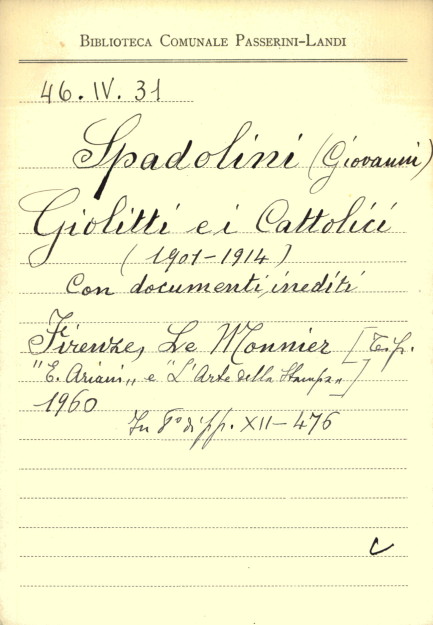 BIBLIOTECA COMUNALE PASSERINI-LANDI
46.IV.31
Spadolini (Giovanni)
Giolitti e i Cattolici
(1901-1914)
Con documenti inediti
Firenze, Le Monnier [Tip.
"E. Ariani" e "L'Arte della Stampa"]
1960
In 8° di pp. XII-476
c